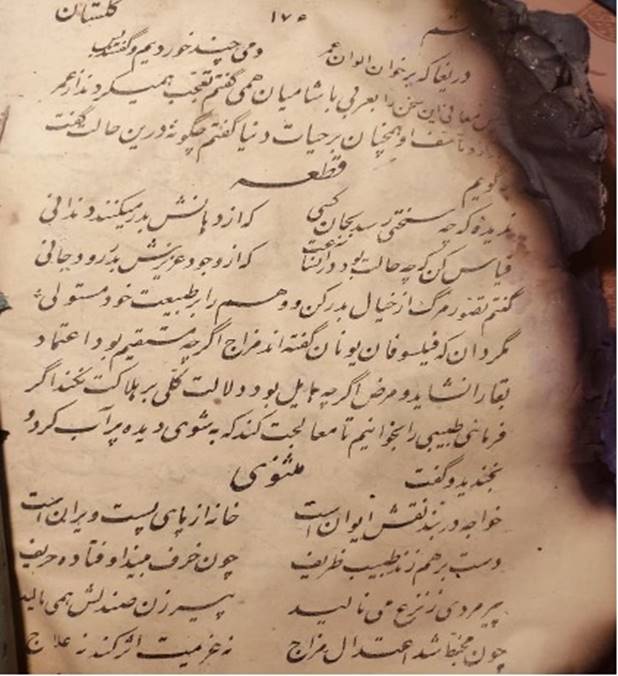 گلستان ۱۷۶
دریغا که بر خوان الوان عمر دمی چند خوردیم و گفتند بس
معانی این سخن را بعربی با شامیان همی گفتم تعجب همیکردند از عمر
و تاسف او همچنان بر حیات دنیا گفتم چگونهٔ درین حالت گفت
گویم
قطعه
ندیدهٔ که چه سختی رسد بجان کسی که از دهانش بدر میکنند دندانی
قیاس کن که چه حالت بود در آن ساعت که از وجود عزیزش بدر رود جانی
گفتم تصور مرگ از خیال بدر کن و وهم را بر طبیعت خود مستولی
مگردان که فیلسوفان یونان گفته اند مزاج اگرچه مستقیم بود اعتماد
بقا را نشاید و مرض اگرچه هایل بود دلالت کلی بر هلاکت نکند اگر
فرمائی طبیبی را بخوانیم تا معالجت کند که به شوی دیده پر آب کرد و
بخندید و گفت مثنوی
خواجه در بند نقش ایوان است خانه از پای پست ویران است
دست بر هم زند طبیب ظریف چون خرف بیند اوفتاده حریف
پیر مردی ز نزع می نالید پیر زن صندلش همی مالید
چون مخبط شد اعتدال مزاج نه عزیمت اثر کند نه علاج